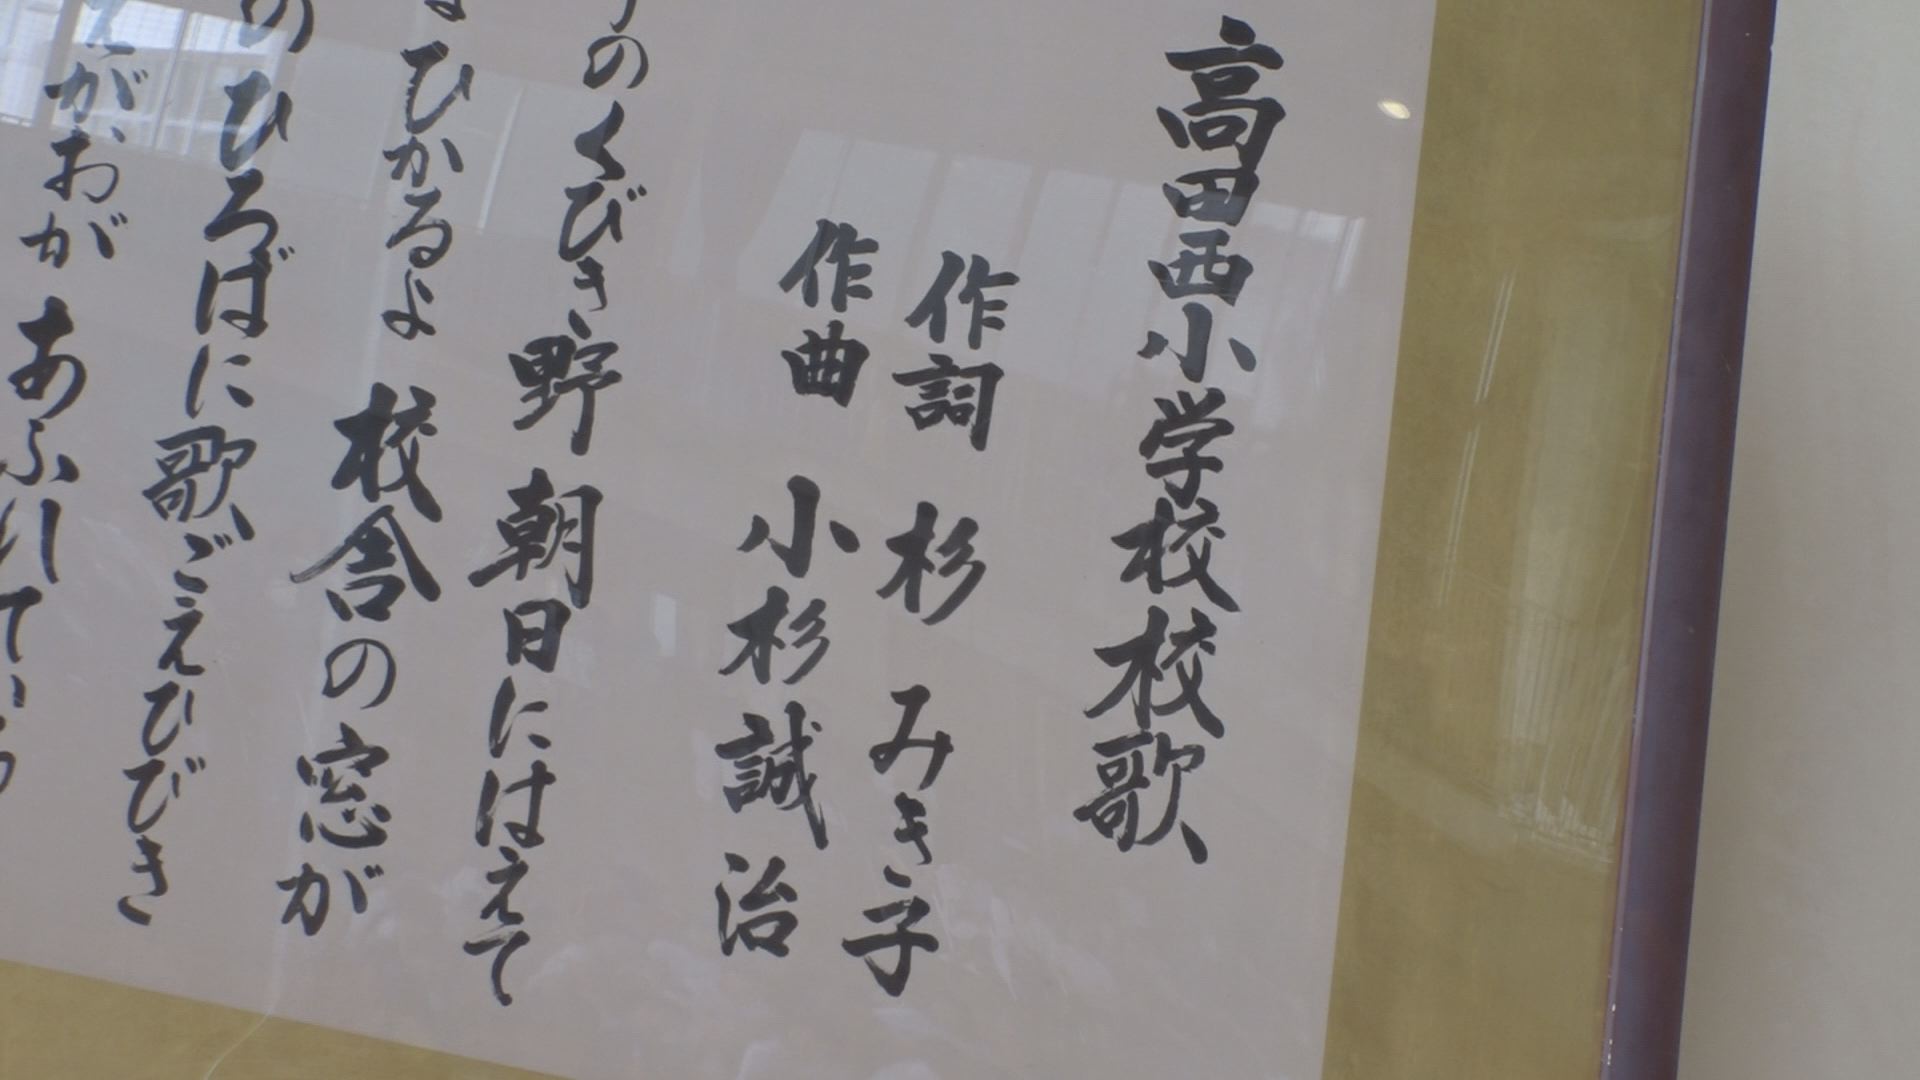 高田西小学校校歌
作詞 杉 みき子
作曲 小杉誠治
のくびき野 朝日にはえて
ひかるよ 校舎の窓が
のひろばに歌ごえひびき
えがおが あふれて